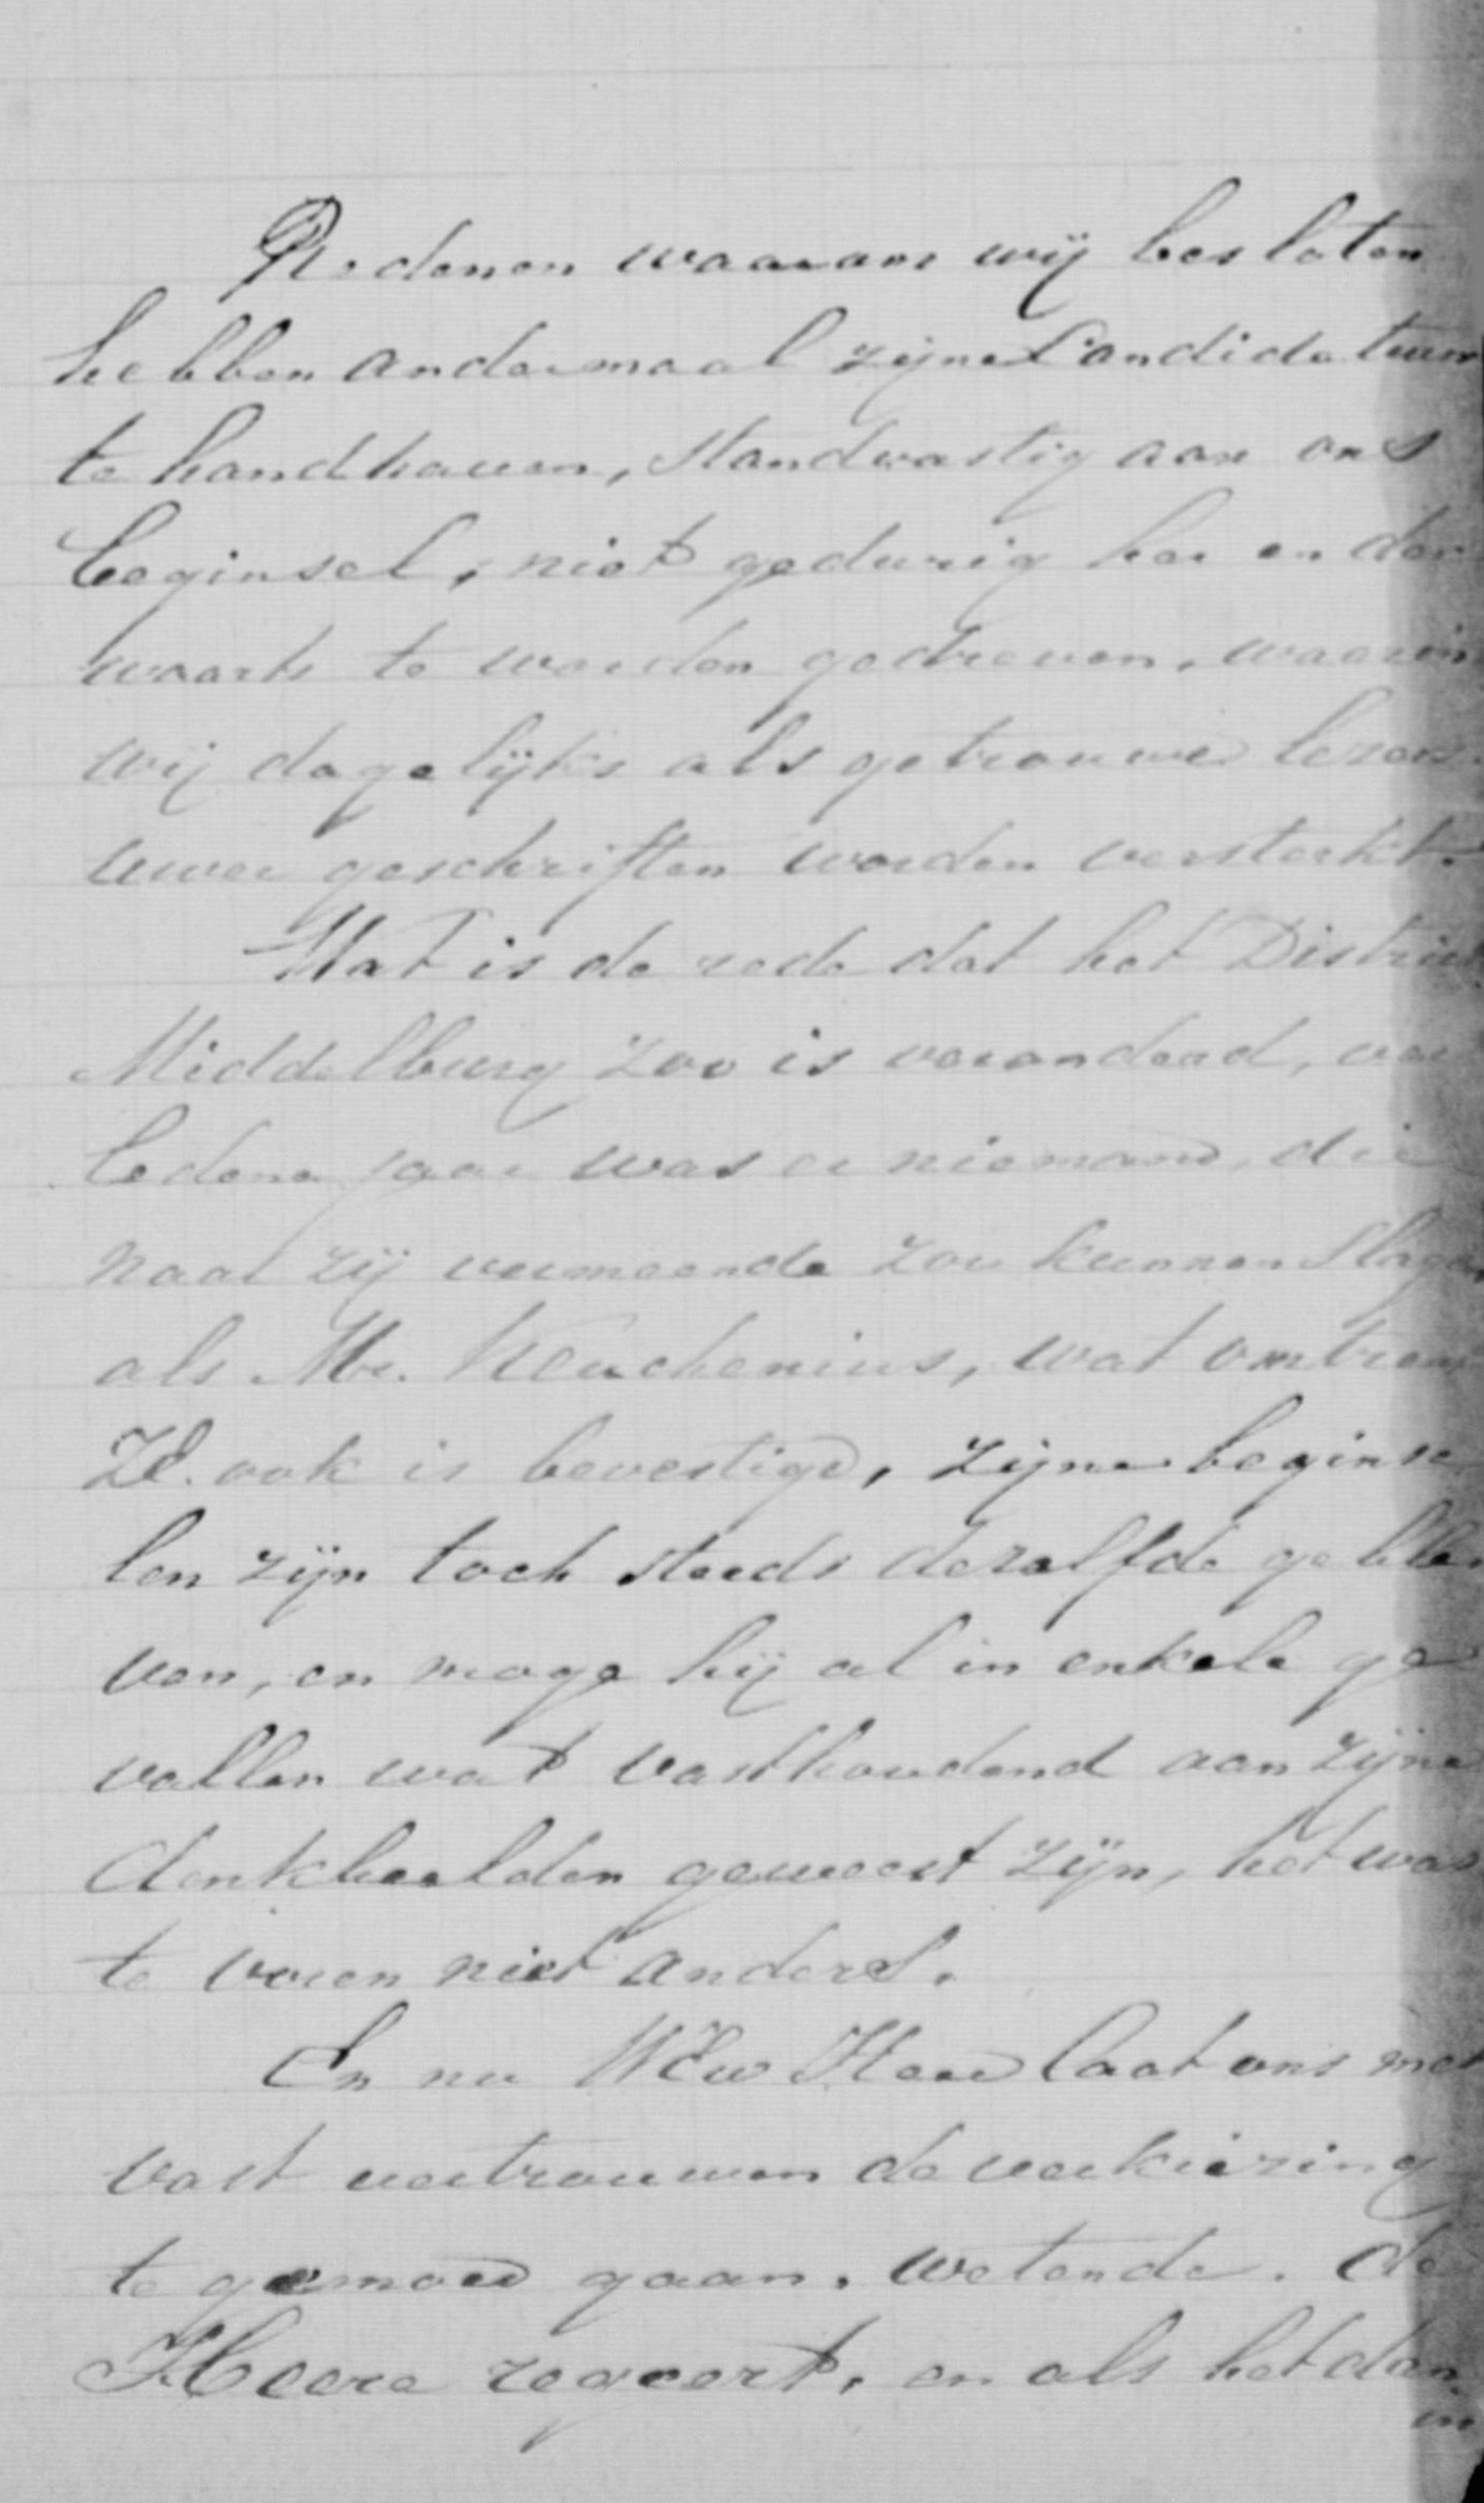 Redenen waarom wij besloten
hebben andermaal zijne Candidatuur
te handhaven, standvastig aan ons
beginsel, niet gedurig her en der
waarts te worden gedreven, waarin
wij dagelijks als getrouwe lezers
uwer geschriften worden versterkt.
Wat is de rede dat het District
Middelburg zoo is veranderd, ver
ledene jaar was er niemand, die
naar zij vermeende zou kunnen slagen
als Mr. Keuchenius, wat omtrent
ZE. ook is bevestigd, zijne beginse
len zijn toch steeds dezelfde geble
ven, en moge hij al in enkele ge
vallen wat vasthoudend aan zijne
denkbeelden geweest zijn, het was
te voren niet anders.
En nu WEw Heer laat ons met
vast vertrouwen de verkiezing
te gemoed gaan, wetende. de
Heere regeert, en als het dan